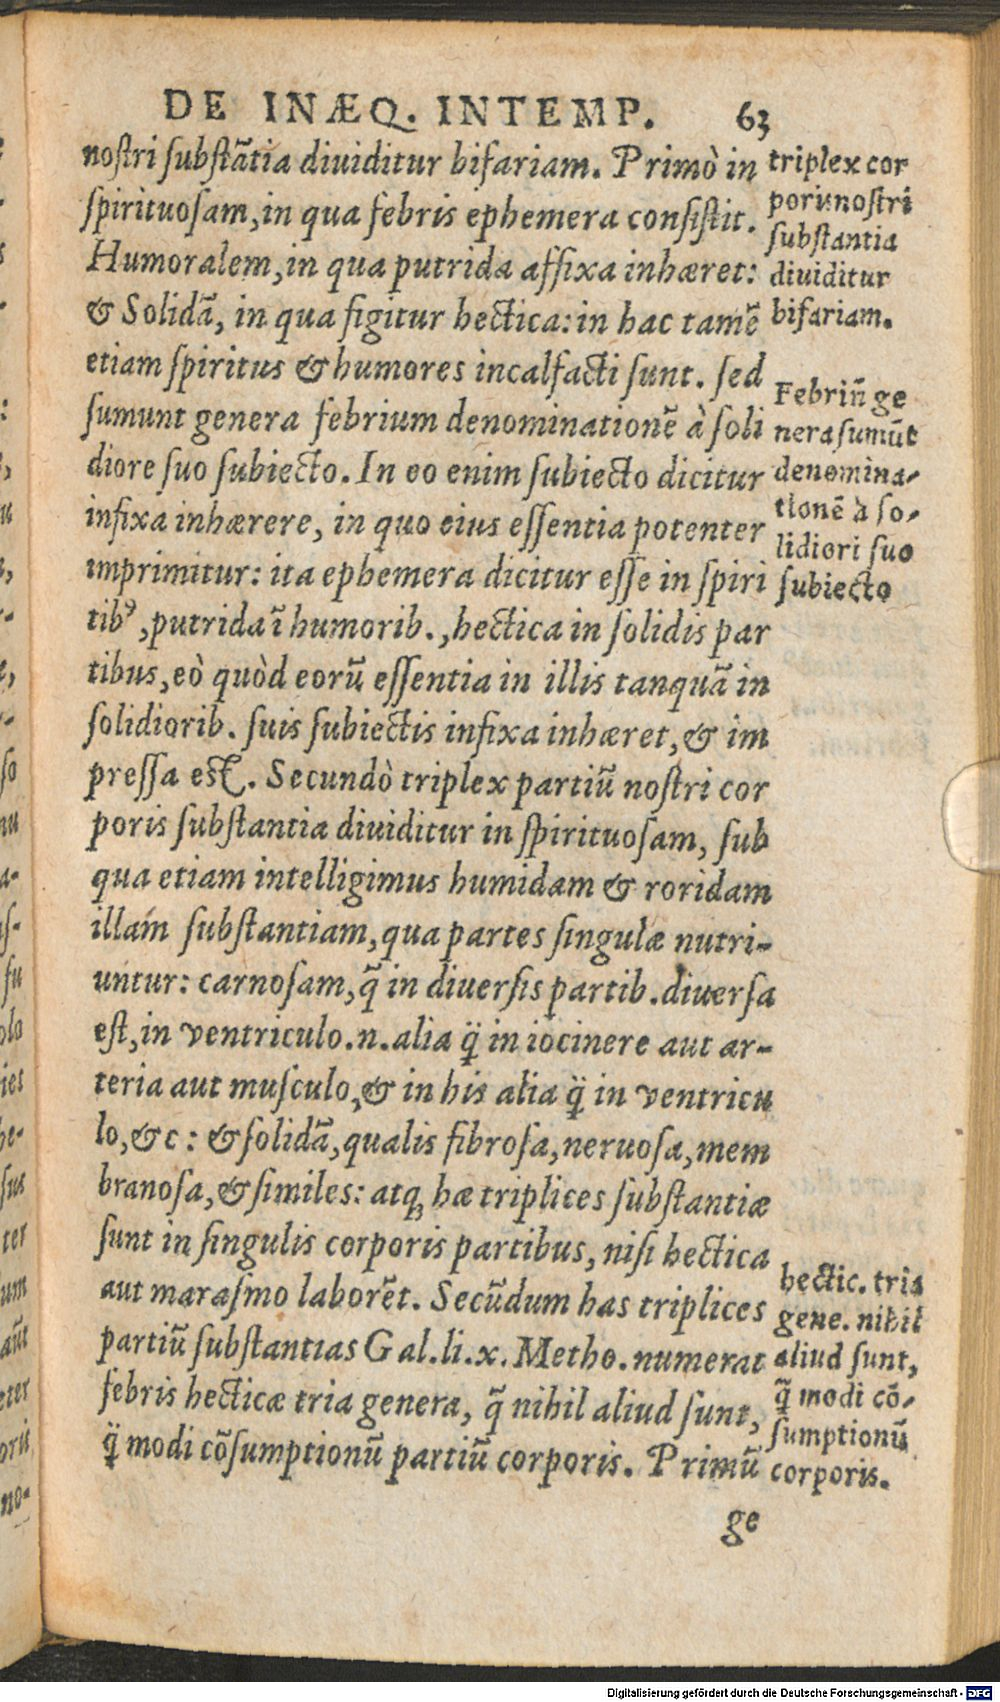 DE INÆQ. INTEMP. 63
noſtri ſubſtãtia diuiditur bifariam. Primò in
ſpirituoſam, in qua febris ephemera conſiſtit.
Humoralem, in qua putrida affixa inhæret:
& Solidã, in qua figitur hectica: in hac tamẽ
etiam ſpiritus & humores incalfacti ſunt. ſed
ſumunt genera febrium denominationẽ à ſoli
diore ſuo ſubiecto. In eo enim ſubiecto dicitur
infixa inhærere, in quo eius eſſentia potenter
imprimitur: ita ephemera dicitur eſſe in ſpiri
tibꝰ, putrida ĩ humorib., hectica in ſolidis par
tibus, eò quòd eorũ eſſentia in illis tanquã in
ſolidiorib. ſuis ſubiectis infixa inhæret, & im
preſſa eſt. Secundò triplex partiũ noſtri cor
poris ſubſtantia diuiditur in ſpirituoſam, ſub
qua etiam intelligimus humidam & roridam
illam ſubſtantiam, qua partes ſingulæ nutri-
untur: carnoſam, q̃ in diuerſis partib. diuerſa
eſt, in ventriculo .n. alia q̈ in iocinere aut ar-
teria aut muſculo, & in his alia q̈ in ventricu
lo, &c: & ſolidã, qualis fibroſa, neruoſa, mem
branoſa, & ſimiles: atq; hæ triplices ſubſtantiæ
ſunt in ſingulis corporis partibus, niſi hectica
aut maraſmo laborẽt. Secũdum has triplices
partiũ ſubſtantias Gal. li. x. Metho. numerat
febris hecticæ tria genera, q̃ nihil aliud ſunt,
q̈ modi cõſumptionũ partiũ corporis. Primũ
ge
triplex cor
poris noſtri
ſubſtantia
diuiditur
bifariam.
Febriũ ge
nera ſumũt
denomina-
tionẽ à ſo-
lidiori ſuo
ſubiecto
hectic. tria
gene. nihil
aliud ſunt,
q̃ modi cõ-
ſumptionũ
corporis.
Digitalisierung gefördert durch die Deutsche Forschungsgemeinschaft - DFG